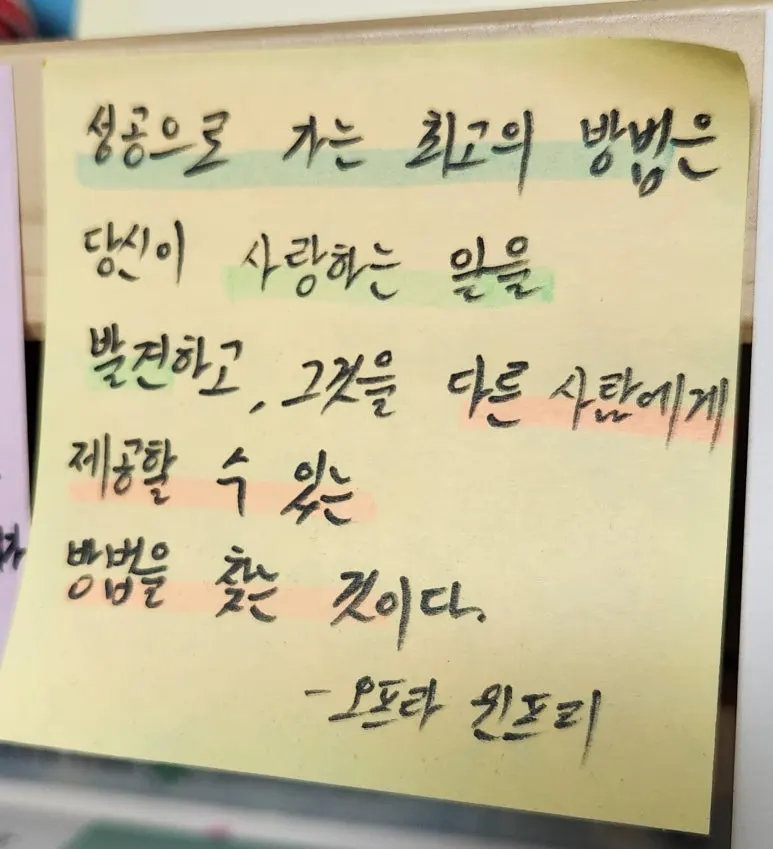 성공으로 가는 최고의 방법은
당신이 사랑하는 일을
발견하고, 그것을 다른 사람에게
제공할 수 있는
방법을 찾는 것이다.
-오프라 윈프리